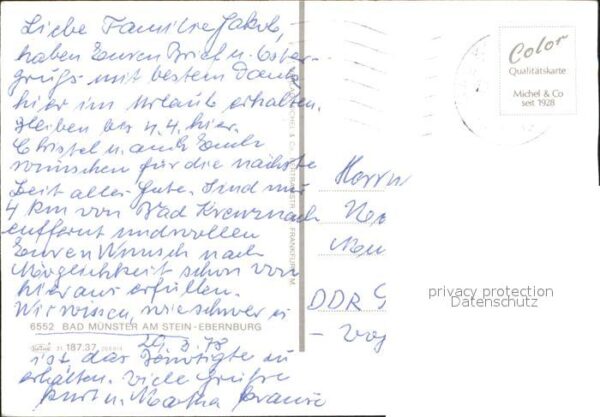 Liebe Familie Jakob,
haben Euren Brief u. Oster-
gruß mit bestem Dank
hier im Urlaub erhalten.
Bleiben bis 4.4. hier.
Christel u. auch Euch
wünschen für die nächste
Zeit alles Gute. Sind nur
4 km von Bad Kreuznach
entfernt und wollen
Euren Wunsch nach
Möglichkeit schon von
hier aus erfüllen.
Wir wissen, wie schwer es
6552 BAD MÜNSTER AM STEIN-EBERNBURG
31 187.37
29.3.78
ist das Benötigte zu
erhalten. Viele Grüße
Kurt u. Martha
MICHEL & CO. FRANKFURT/M
Color
Qualitätskarte
Michel & Co
seit 1928
Herrn
DDR
privacy protection
Datenschutz